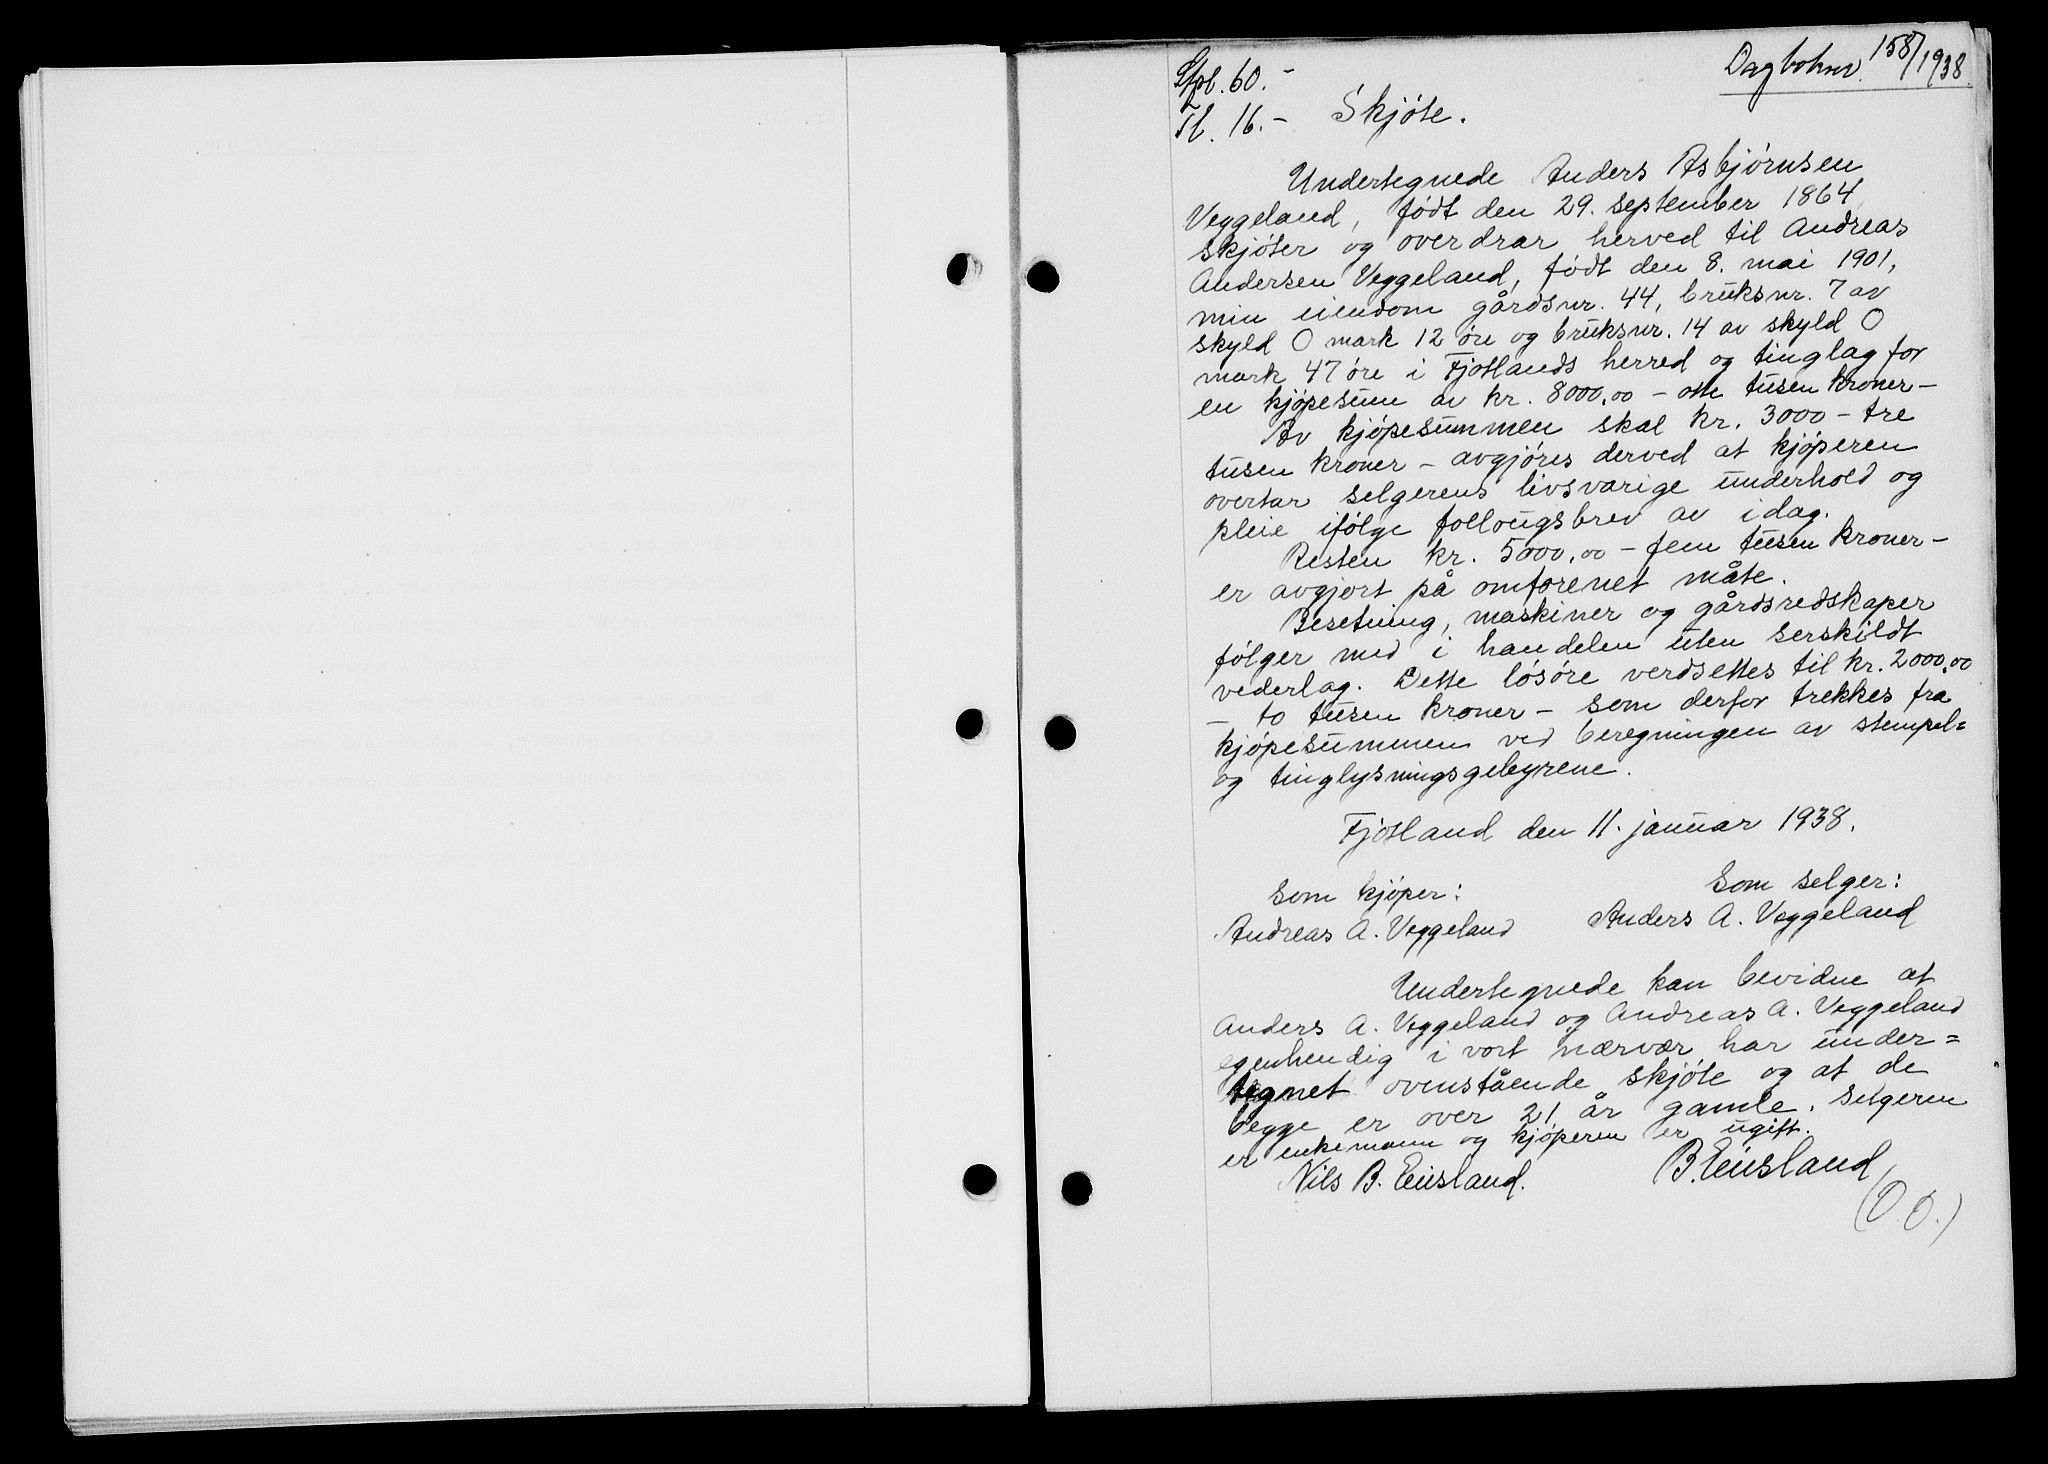 Dagboknr. 158/1938
Stpl. 60.-
Tl. 16.- Skjøte.
Undertegnede Anders Asbjørnsen
Veggeland, født den 29. september 1864,
skjøter og overdrar herved til Andreas
Andersen Veggeland, født den 8. mai 1901,
min eiendom gårdsnr. 44, bruksnr. 7 av
skyld 0 mark 12 øre og bruksnr. 14 av skyld 0
mark 47 øre i Fjotlands herred og tinglag for
en kjøpesum av kr. 8000,00 - otte tusen kroner -
Av kjøpesummen skal kr. 3000 - tre
tusen kroner - avgjøres derved at kjøperen
overtar selgerens livsvarige underhold og
pleie ifølge follougsbrev av idag.
Resten kr. 5000,00 - fem tusen kroner -
er avgjort på omforenet måte.
Besetning, maskiner og gårdsredskaper
følger med i handelen uten serskildt
vederlag. Dette løsøre verdsettes til kr. 2000,00
- to tusen kroner - som derfor trekkes fra
kjøpesummen ved beregningen av stempel=
og tinglysningsgebyrene.
Fjotland den 11. januar 1938.
Som kjøper: Som selger:
Andreas A. Veggeland Anders A. Veggeland
Undertegnede kan bevidne at
Anders A. Veggeland og Andreas A. Veggeland
egenhendig i vort nærvær har under=
tegnet ovenstående skjøte og at de
begge er over 21 år gamle. Selgeren
er enkemann og kjøperen er ugift.
Nils B. Eiusland. B. Eiusland
(O.O.)